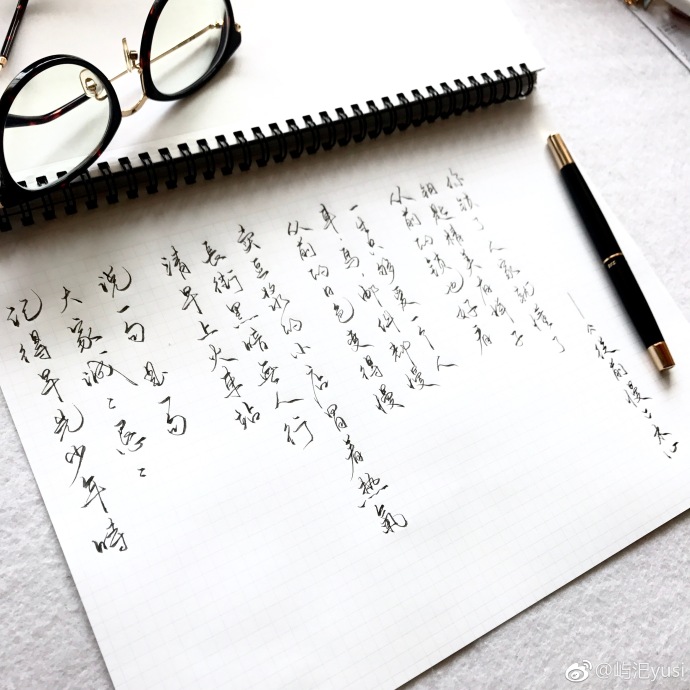 记得早先少年時
大家诚〻恳〻
说一句 是一句
清早上火車站
長街黑暗無人行
卖豆浆的小店冒着熱氣
从前的日色变得慢
车,马,邮件都慢
一生只够爱一个人
从前的锁也好看
钥匙精美有样子
你锁了 人家就懂了
——《從前慢》木心
@屿汜yusi